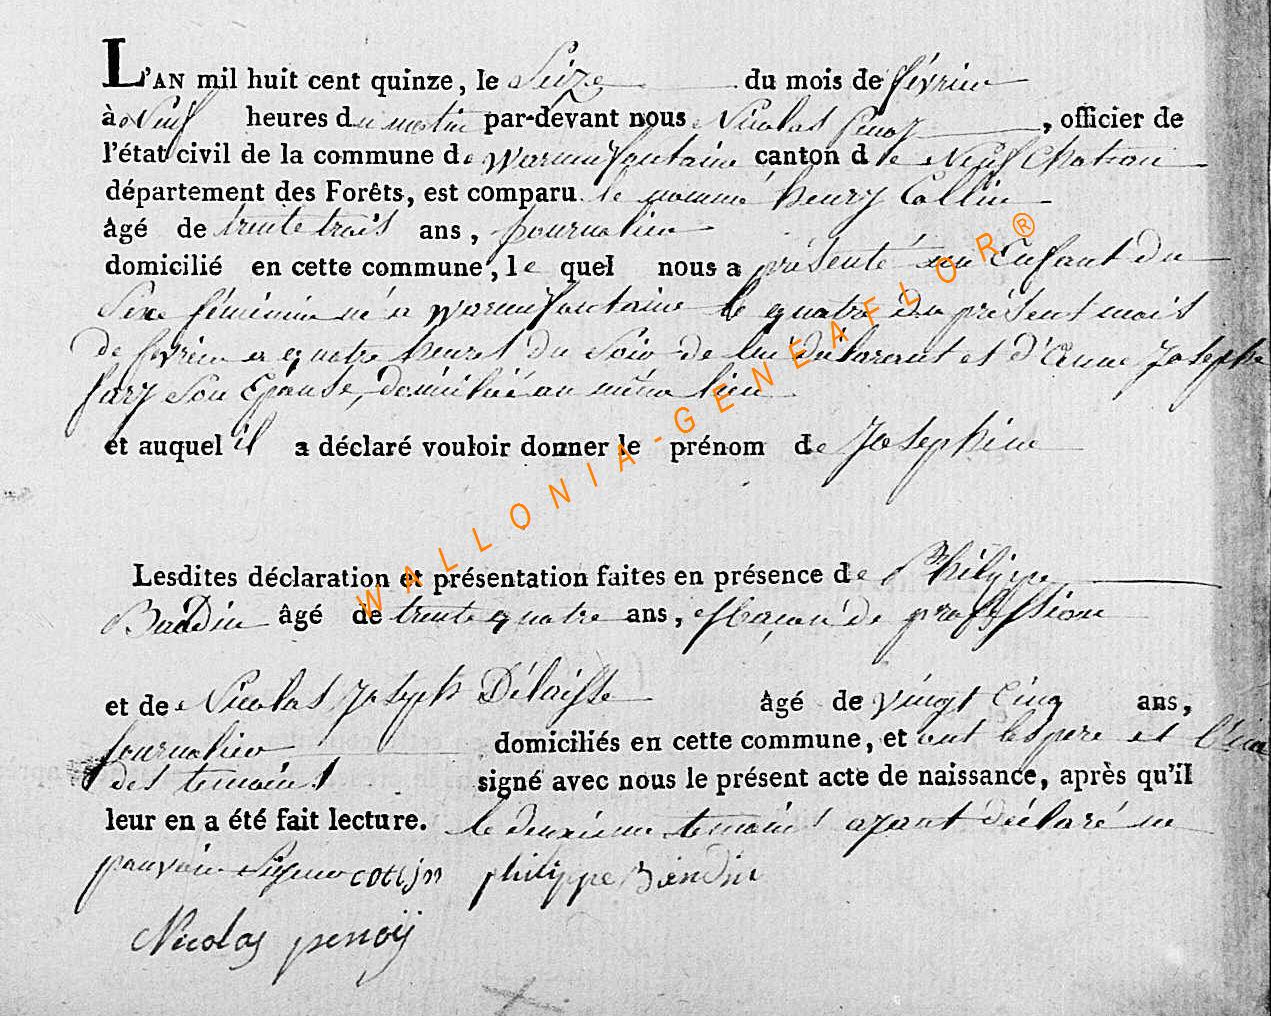 L'AN mil huit cent quinze, le Seize du mois de février
à Neuf heures du matin par-devant nous Nicolas Penoy, officier de
l'état civil de la commune de Warmifontaine canton de Neufchateau
département des Forêts, est comparu le nommé henry Collin
âgé de trente trois ans, journalier
domicilié en cette commune, le quel nous a présenté un Enfant du
Sexe féminin né a Warmifontaine le quatre du présent mois
de fevrier a quatre heures du soir de lui déclarant et d'Anne Josephe
Jary Son Epouse, domiciliée au même lieu
et auquel il a déclaré vouloir donner le prénom de Josephine
Lesdites déclaration et présentation faites en présence de Philippe
Baudin âgé de trente quatre ans, Maçon de profession
et de Nicolas Joseph Délaisse âgé de vingt Cinq ans,
Journalier domiciliés en cette commune, et ont le pere et l'un
des temoins signé avec nous le présent acte de naissance, après qu'il
leur en a été fait lecture. le deuxieme temoins ayant déclaré ne
pouvoir Signer collin philippe Baudin
Nicolas penoÿ
WALLONIA-GENEAFLOR®